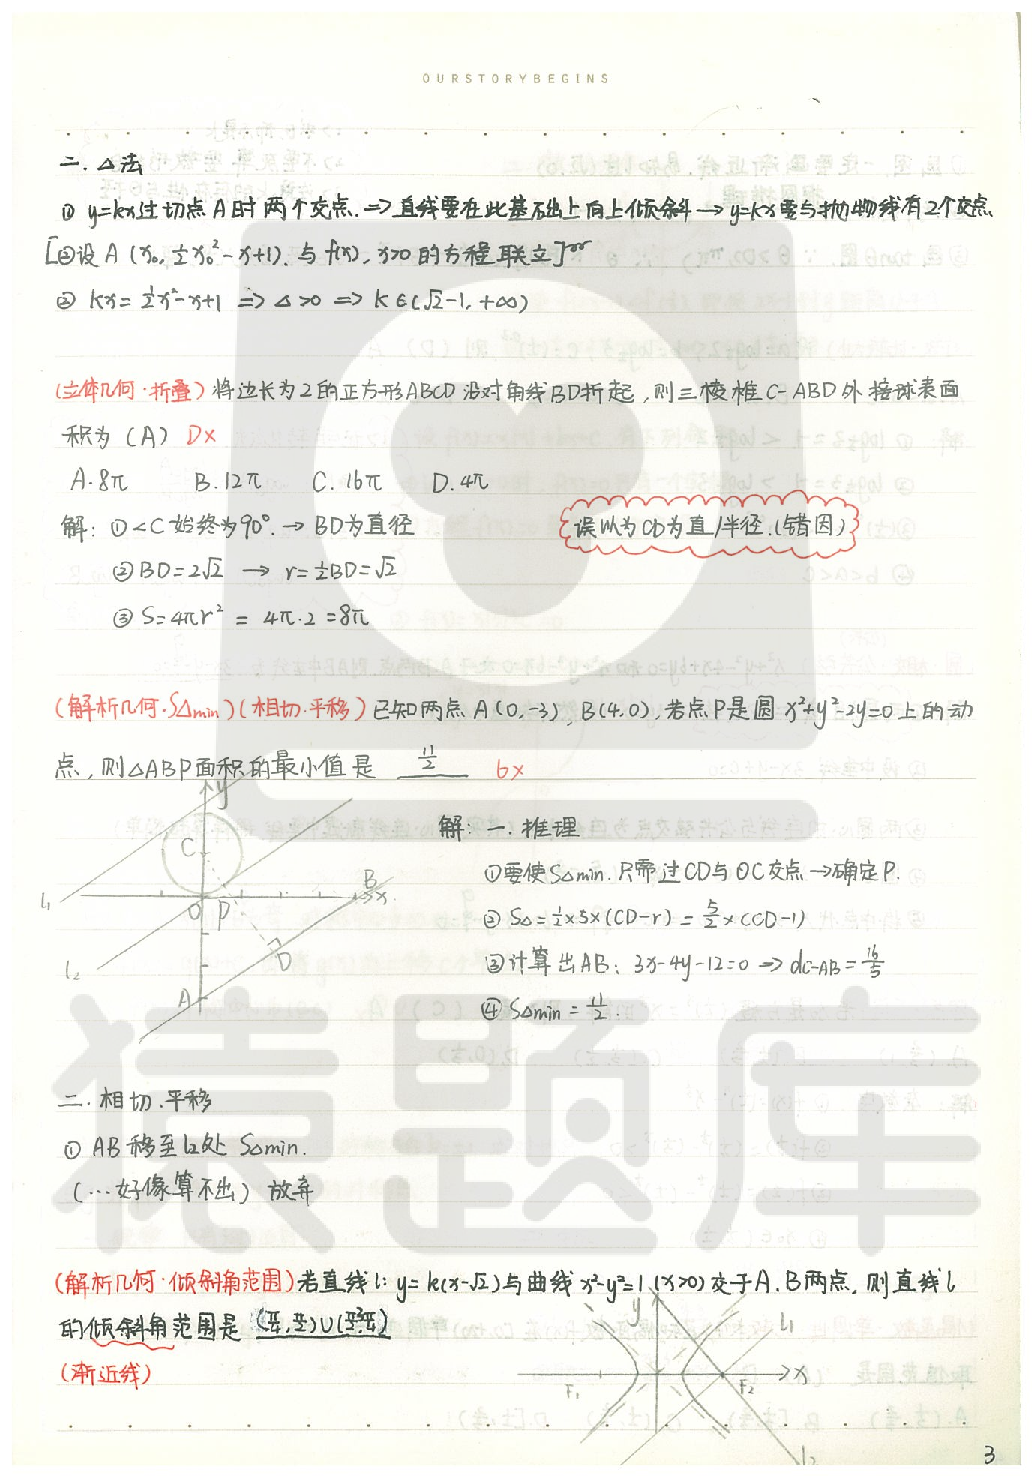 OURSTORYBEGINS
二. △法
① y=kx过切点A时两个交点. => 直线要在此基础上向上倾斜 → y=kx要与抛物线有2个交点.
[②设A (x₀, ½x₀²-x+1). 与 f(x), x>0 的方程联立]
② kx = ½x²-x+1 => △>0 => k∈(√2-1, +∞)
(立体几何·折叠) 将边长为2的正方形ABCD沿对角线BD折起,则三棱椎C-ABD外接球表面
积为 (A) D×
A.8π B.12π C.16π D.4π
解: ①<C始终为90°. → BD为直径
误以为CD为直/半径.(错因)
②BD=2√2 → r=½BD=√2
③S=4πr² = 4π·2 =8π
(解析几何·S△min)(相切·平移) 已知两点A(0,-3), B(4,0), 若点P是圆x²+y²-2y=0上的动
点,则△ABP面积的最小值是 11/2 6×
y
C
B
x
l₁
O
P
l₂
D
A
解: 一.推理
①要使S△min. 只需过CD与OC交点 →确定P.
② S△=½×5×(CD-r) = 5/2×(CD-1)
③计算出AB: 3x-4y-12=0 => dC-AB = 16/5
④ S△min = 11/2.
二.相切.平移
① AB移至l₂处 S△min.
(…好像算不出) 放弃
(解析几何·倾斜角范围) 若直线l: y=k(x-√2)与曲线x²-y²=1 (x>0)交于A.B两点, 则直线l
的倾斜角范围是 (π/4, π/2)∪(π/2, 3π/4)
(渐近线)
y
l₁
x
F₁
F₂
l₂
3
猿题库